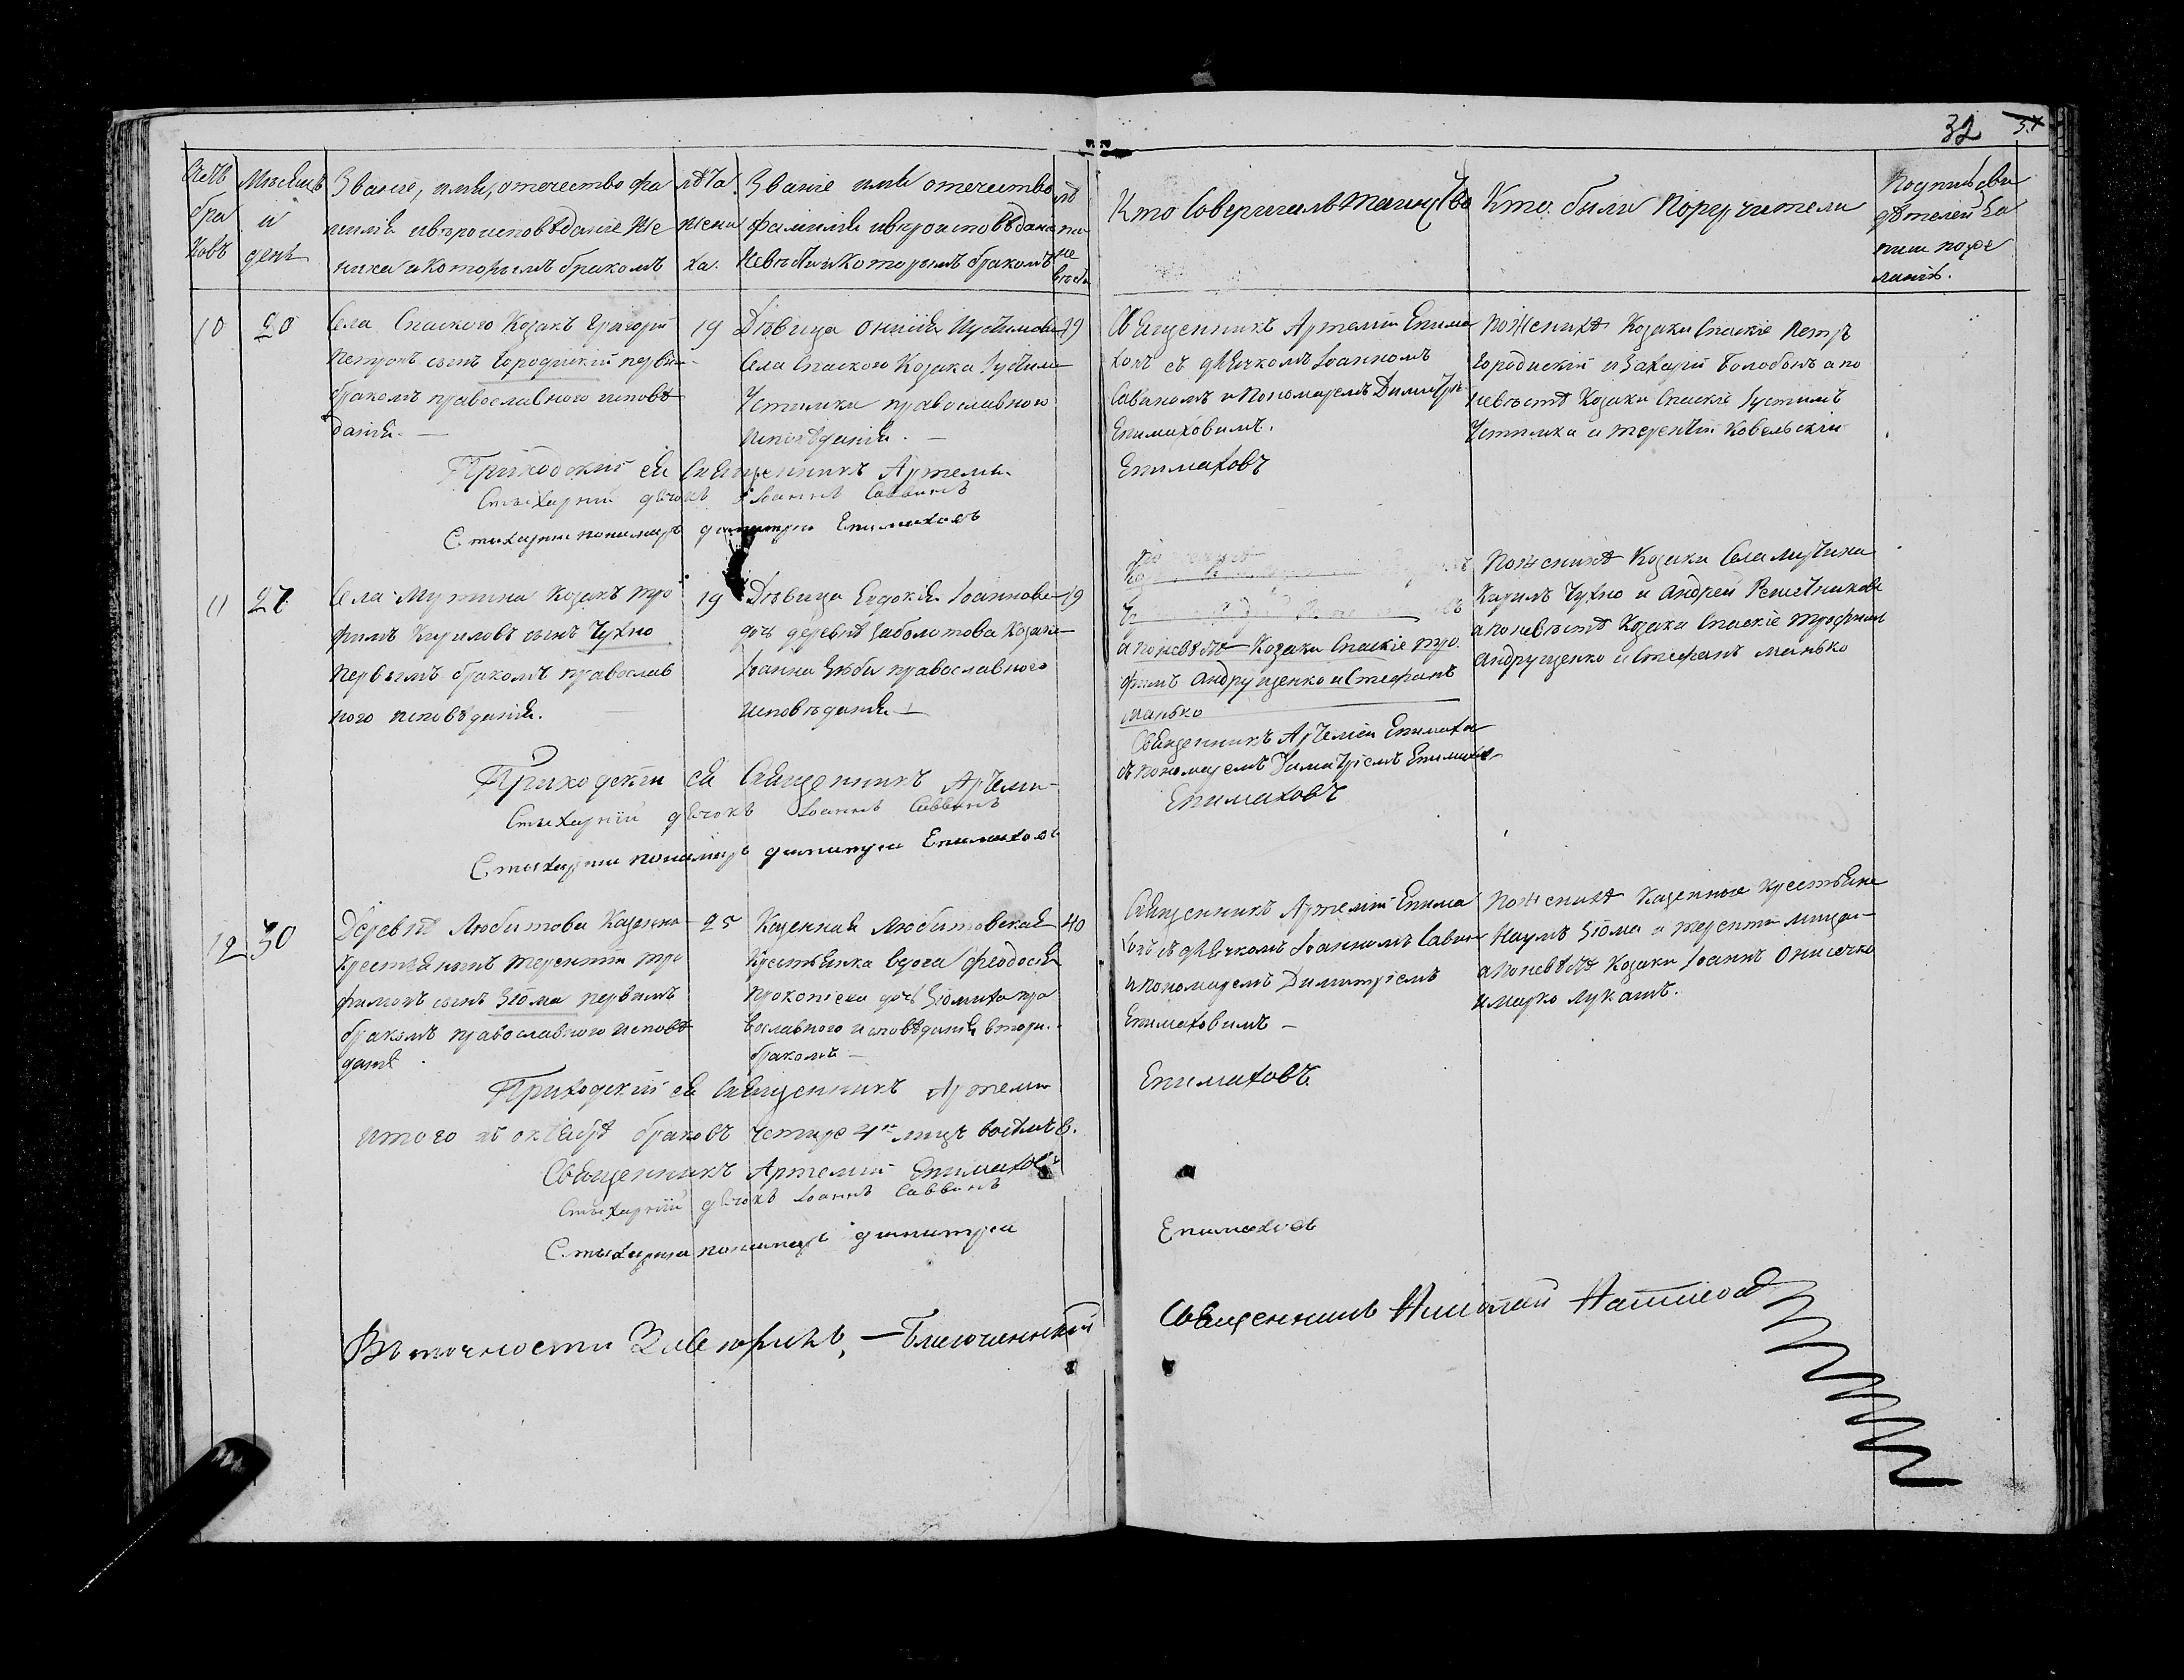 32
Счетъ браковъ
Мѣсяцъ и день
Званіе, имя, отечество фа
милія ивѣроисповѣданіе Же
ниха икоторымъ бракомъ
лѣта
жени
ха.
Званіе имя отечество
фамилія ивѣроисповѣдані
Невѣсты икоторымъ бракомъ
лѣ
та
не
вѣсты
Кто Совершалъ таинство
Кто были поручители
Подписъ сви
дѣтелей За
писи поже
ланію.
10
20
Села Спаского Козакъ Григорій
Петровъ сынъ Городискій первым
бракомъ православного исповѣ
данія.
19
Дѣвица
Села Спаского Козака Іустима
Устимка православного
исповѣданія.
19
Священникъ Артемій Епима
ховъ съ дьячкомъ Іоанномъ
Савиномъ и Пономаремъ Димитрі
Епимаховимъ.
По женихѣ Козаки Спаскіе Петръ
Городискій и Захарій Болобонъ а по
невѣстѣ Козаки Спаскіе Іустимъ
Устимка и терентій Ковельскій
Приходскій сей Священникъ Артемій
Епимаховъ
Стихарній дьячокъ Іоаннъ Саввинъ
Стихарни пономарь димитри Епимаховъ
11
27
Села Мутина Козакъ Тро
фимъ Кириловъ сынъ Чухно
первымъ бракомъ православ
ного исповѣданія.
19
Дѣвица Евдокія Іоаннова
дочь деревнѣ Заболотова Козака
Іоанна Зюби православного
исповѣданія
19
а по невѣстѣ Козаки Спаскіе Тро
фимъ Андрущенко и Стефанъ
манько
Священникъ Артемій Епимахо
съ пономаремъ Димитріемъ Епимахо
По женихѣ Козаки Села Мутина
Кирилъ Чухно и Андрей Решетников
а по невѣстѣ Козаки Спаскіе трофимъ
Андрущенко и Стефанъ манько
Приходскій сей Священникъ Артеми
Епимаховъ
Стихарній дьячокъ Іоаннъ Саввинъ
Стихарни пономарь димитри Епимаховъ
12
30
Деревнѣ Любитова Казенно
крестьянинъ терентій тро
фимовъ сынъ Зіома первымъ
бракомъ православного исповѣ
данія
25
Казенная Любитовская
крестьянка вдова феодосія
прокопіева дочь Зіомиха пра
вославного исповѣданія втори.
бракомъ
40
Священникъ Артемій Епима
ховъ съ дьячкомъ Іоанномъ Савин
и пономаремъ Димитріемъ
Епимаховимъ
По женихѣ Казенные крестьяне
Наумъ Зіома и терентій
а по невѣстѣ Козаки Іоаннъ Онисечко
и марко Лукашъ.
Приходскій сей Священникъ Артеми
Епимаховъ
Итого въ октябрѣ браковъ четире 4 лицъ восѣмъ 8.
Священникъ Артемій Епимаховъ
Стихарній дьячокъ Іоаннъ Саввинъ
Стихарни пономарь димитри
Епимаховъ
Въ точности
Священникъ Николай